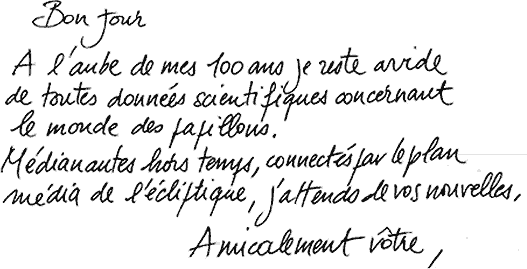 Bonjour
A l'aube de mes 100 ans je reste avide
de toutes données scientifiques concernant
le monde des papillons.
Médianautes hors temps, connectés par le plan
média de l'écliptique, j'attends de vos nouvelles,
Amicalement vôtre,